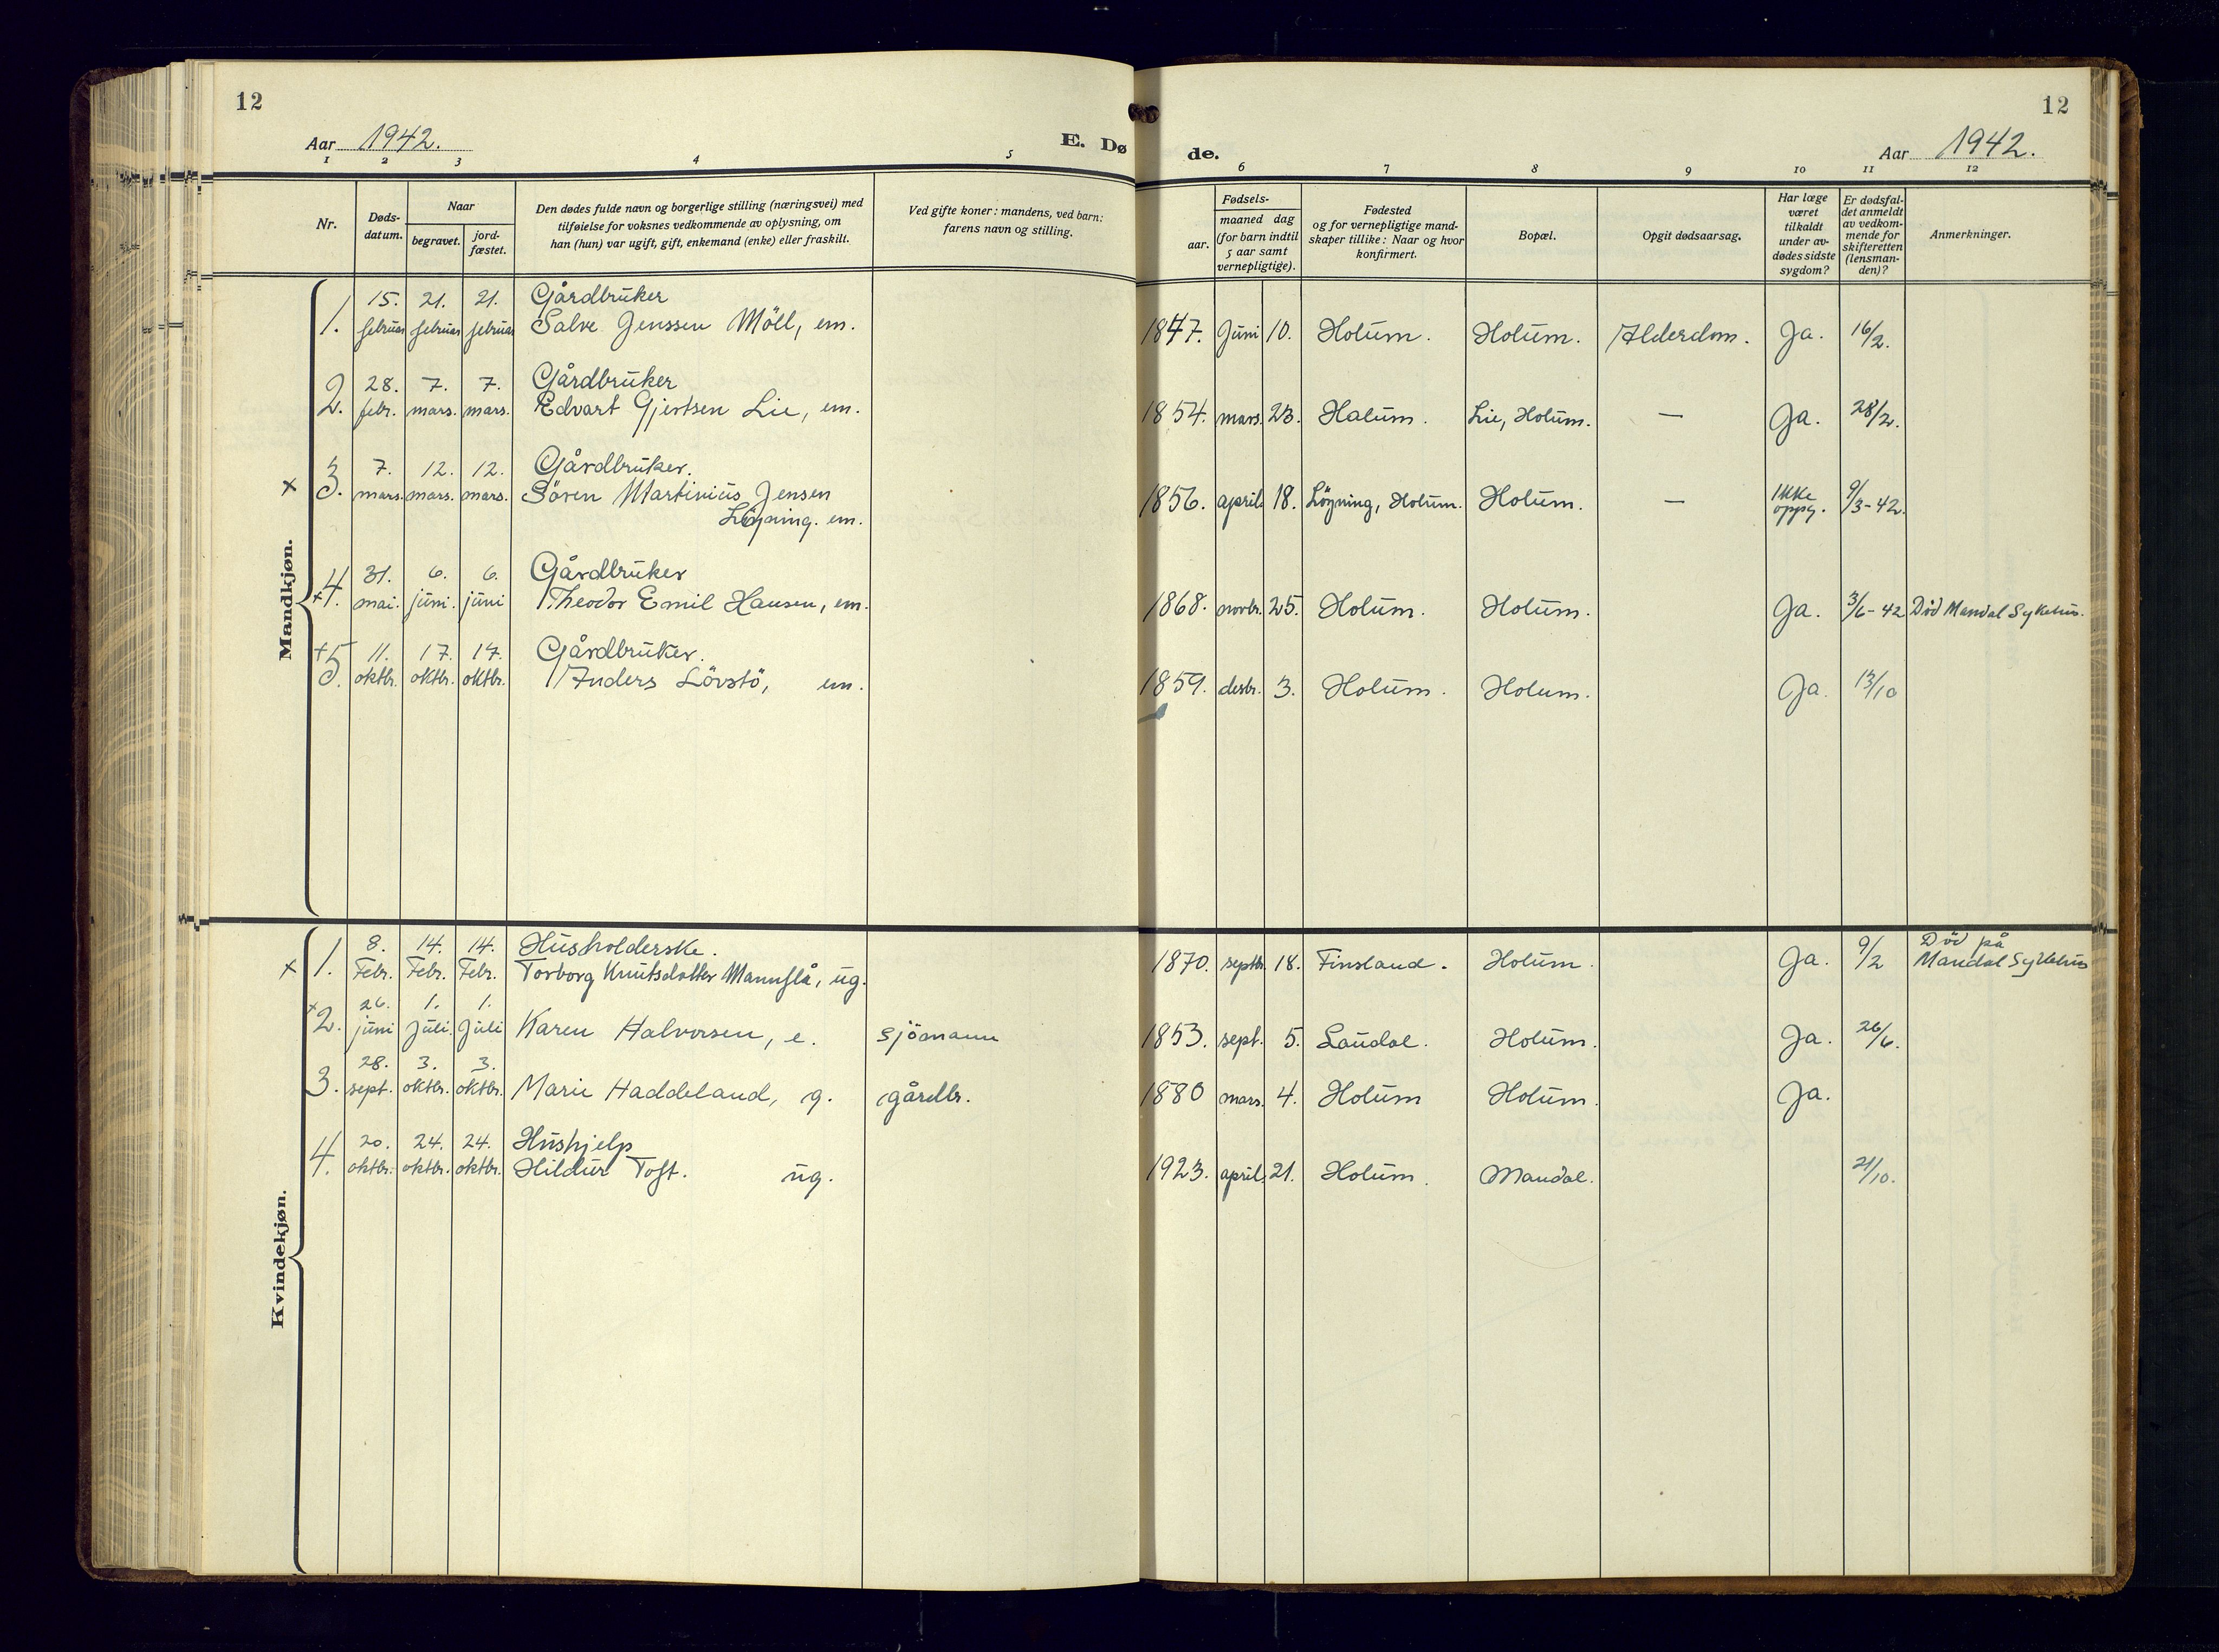 12
Aar 1942.
E. Dø
1 2 3 4 5
Nr.
Døds-
datum.
Naar
begravet.
jord-
fæstet.
Den dødes fulde navn og borgerlige stilling (næringsvei) med
tilføielse for voksnes vedkommende av oplysning, om
han (hun) var ugift, gift, enkemand (enke) eller fraskilt.
Ved gifte koner: mandens, ved barn:
farens navn og stilling.
12
de.
Aar 1942.
6 7 8 9 10 11 12
Fødsels-
aar.
maaned dag
(for barn indtil
5 aar samt
vernepligtige).
Fødested
og for vernepligtige mand-
skaper tillike: Naar og hvor
konfirmert.
Bopæl.
Opgit dødsaarsag.
Har læge
været
tilkaldt
under av-
dødes sidste
sygdom?
Er dødsfal-
det anmeldt
av vedkom-
mende for
skifteretten
(lensman-
den)?
Anmerkninger.
Mandkjøn.
15. 21. 21. Gårdbruker
1. februar februar februar Salve Jenssen Möll, em. 1847. Juni 10. Holum. Holum. Alderdom. Ja. 16/2.
28. 7. 7. Gårdbruker
2. febr. mars. mars. Edvart Gjertsen Lie, em. 1854. mars. 23. Halum. Lie, Holum. — Ja. 28/2.
7. 12. 12. Gårdbruker.
x 3. mars. mars. mars. Sören Martinius Jensen 1856. april 18. Lögning, Holum. Holum. — Ikke oppg. 9/3-42.
Lögning. em.
31. 6. 6. Gårdbruker
x 4. mai. juni. juni Theodor Emil Hansen, em. 1868. novbr. 25. Holum. Holum. Ja. 3/6-42 Död Mandal Sykehus.
+ 11. 17. 17. Gårdbruker.
5. oktbr. oktbr. oktbr. Anders Lövstö, em. 1859. desbr. 3. Holum. Holum. Ja. 13/10
Kvindekjøn.
8. 14. 14. Husholderske. Död på
x 1. Febr. Febr. Febr. Torborg Knutsdatter Mannflå, ug. 1870. septbr. 18. Finsland. Holum. Ja. 9/2 Mandal Sykehus
26. 1. 1.
x 2. juni Juli Juli Karen Halvorsen, e. sjömann 1853. sept. 5. Laudal. Holum. Ja. 26/6.
28. 3. 3.
3. sept. oktbr. oktbr. Marie Haddeland, g. gårdbr. 1880 mars. 4. Holum Holum. Ja.
20. 24. 24. Hushjelp
4. oktbr. oktbr. oktbr. Hildur Toft. ug. 1923. april 21. Holum. Mandal. 21/10.